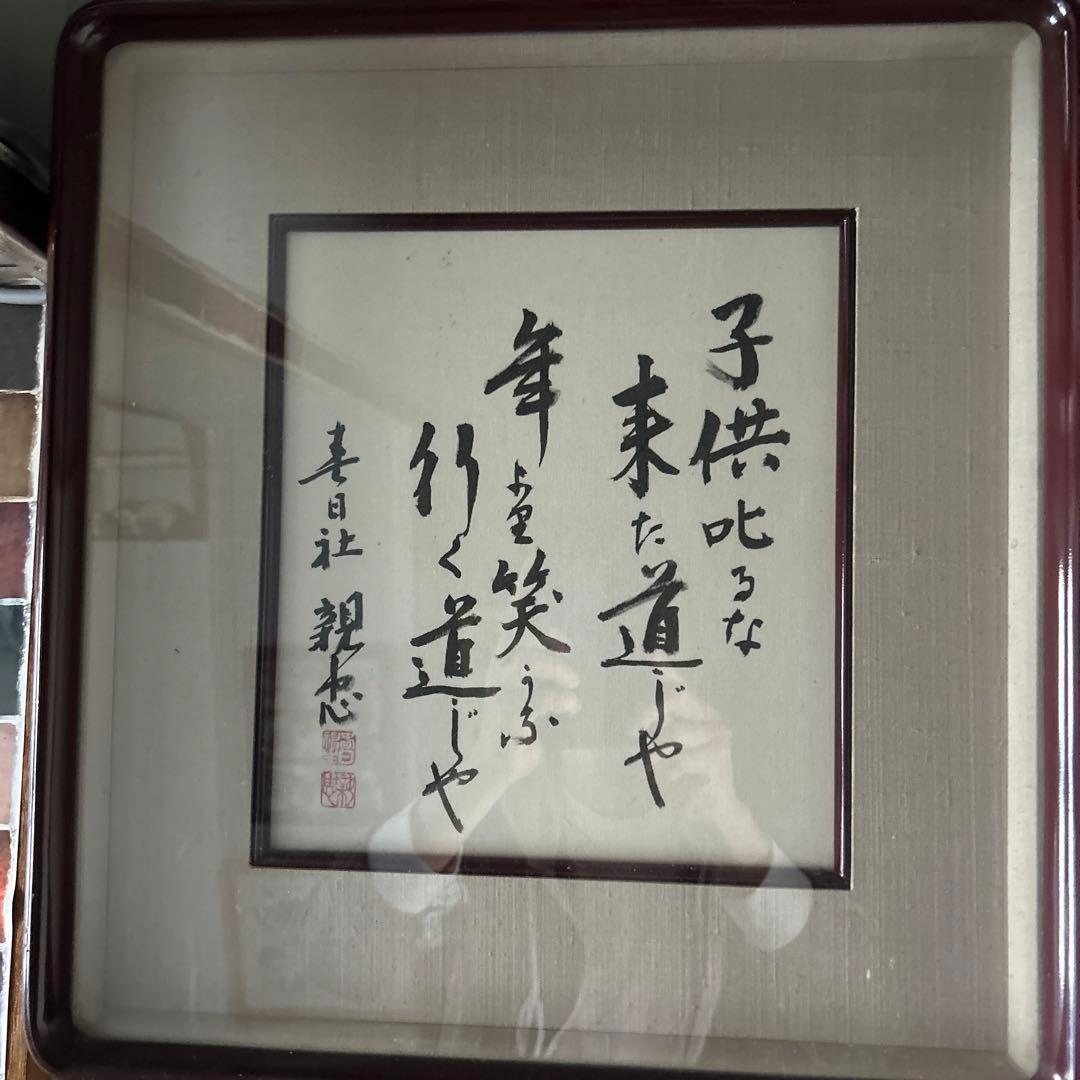 子供叱るな
来た道じや
年より笑うな
行く道じや
春日社 親忠